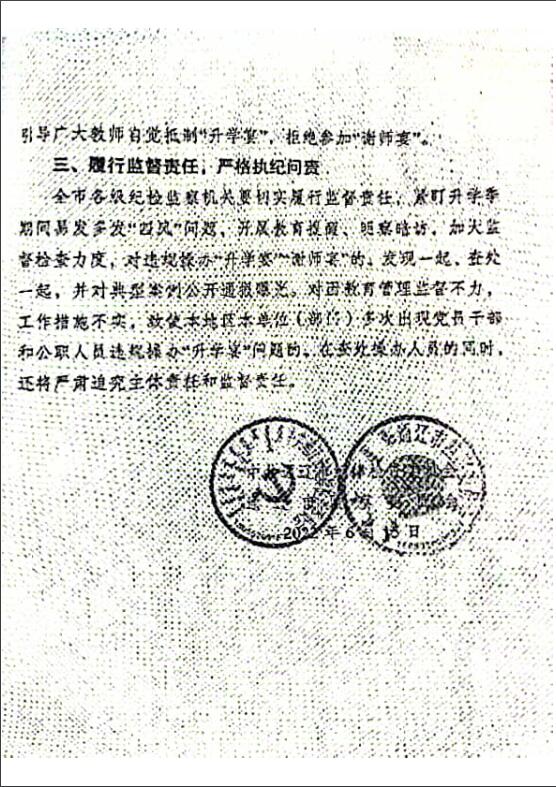 引导广大教师自觉抵制“升学宴”，拒绝参加“谢师宴”。
三、履行监督责任，严格执纪问责
全市各级纪检监察机关要切实履行监督责任，紧盯升学季
期间易发多发“四风”问题，开展教育提醒、明察暗访，加大监
督检查力度，对违规操办“升学宴”“谢师宴”的，发现一起、查处
一起，并对典型案例公开通报曝光。对因教育管理监督不力，
工作措施不实，致使本地区本单位（部门）多次出现党员干部
和公职人员违规操办“升学宴”问题的，在查处操办人员的同时，
还将严肃追究主体责任和监督责任。
年6月15日